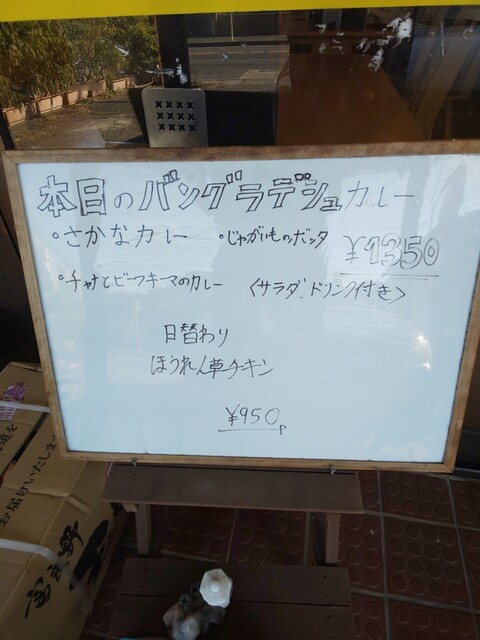 本日のバングラデシュカレー
・さかなカレー ・じゃがいものボッタ
¥1350
・チャナとビーフキーマのカレー 〈サラダ、ドリンク付き〉
日替わり
ほうれん草チキン
¥950
お届けいたしま